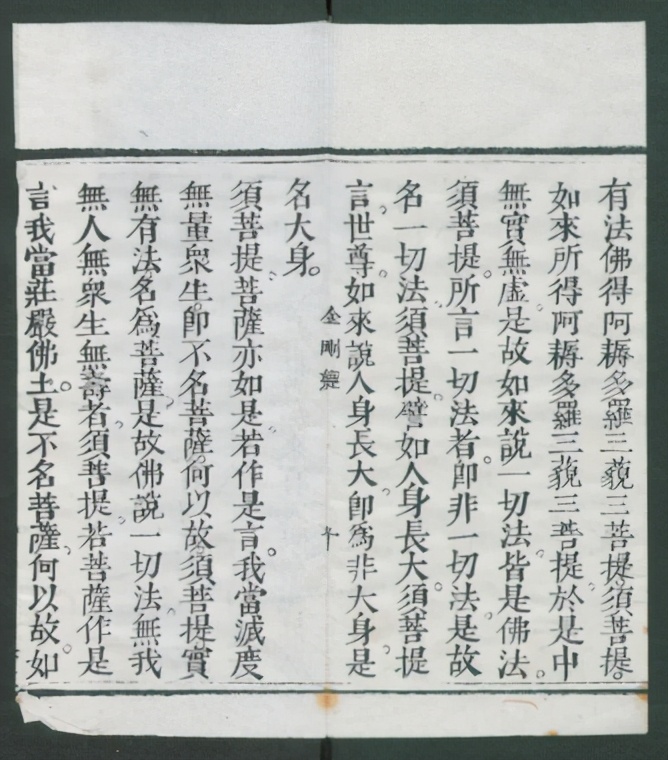 有法佛得阿耨多羅三藐三菩提須菩提。
如來所得阿耨多羅三藐三菩提於是中
無實無虛。是故如來說一切法皆是佛法。
須菩提。所言一切法者。卽非一切法。是故
名一切法。須菩提。譬如人身長大。須菩提
言。世尊。如來說人身長大。卽爲非大身。是
名大身。
金剛經
須菩提。菩薩亦如是。若作是言。我當滅度
無量衆生。卽不名菩薩。何以故。須菩提實
無有法。名爲菩薩。是故佛說一切法。無我
無人無衆生無壽者。須菩提若菩薩作是
言。我當莊嚴佛土。是不名菩薩。何以故。如